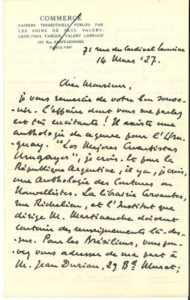 COMMERCE
CAHIERS TRIMESTRIELS PUBLIÉS PAR
LES SOINS DE PAUL VALÉRY,
LÉON-PAUL FARGUE, VALERY LARBAUD
71 rue du Cardinal Lemoine
14 Mars '27.
Cher Monsieur,
je vous remercie de votre bon
L'affaire dont vous me parlez
est très Il existe une
anthologie de ce genre pour l'Uru-
guay. "Los Mejores Cuentistas
Uruguayos", je crois. Et pour la
République Argentine, il y a, je crois,
une Anthologie des Conteurs ou
Nouvellistes. La librairie Cervantes,
rue Richelieu, et l'Institut que
dirige M. Martinenche doivent
des renseignements là-des-
sus. Pour les Brésiliens, vous pou-
vez vous adresser de ma part à
M. Jean Duriau, 29 Bd Murat;